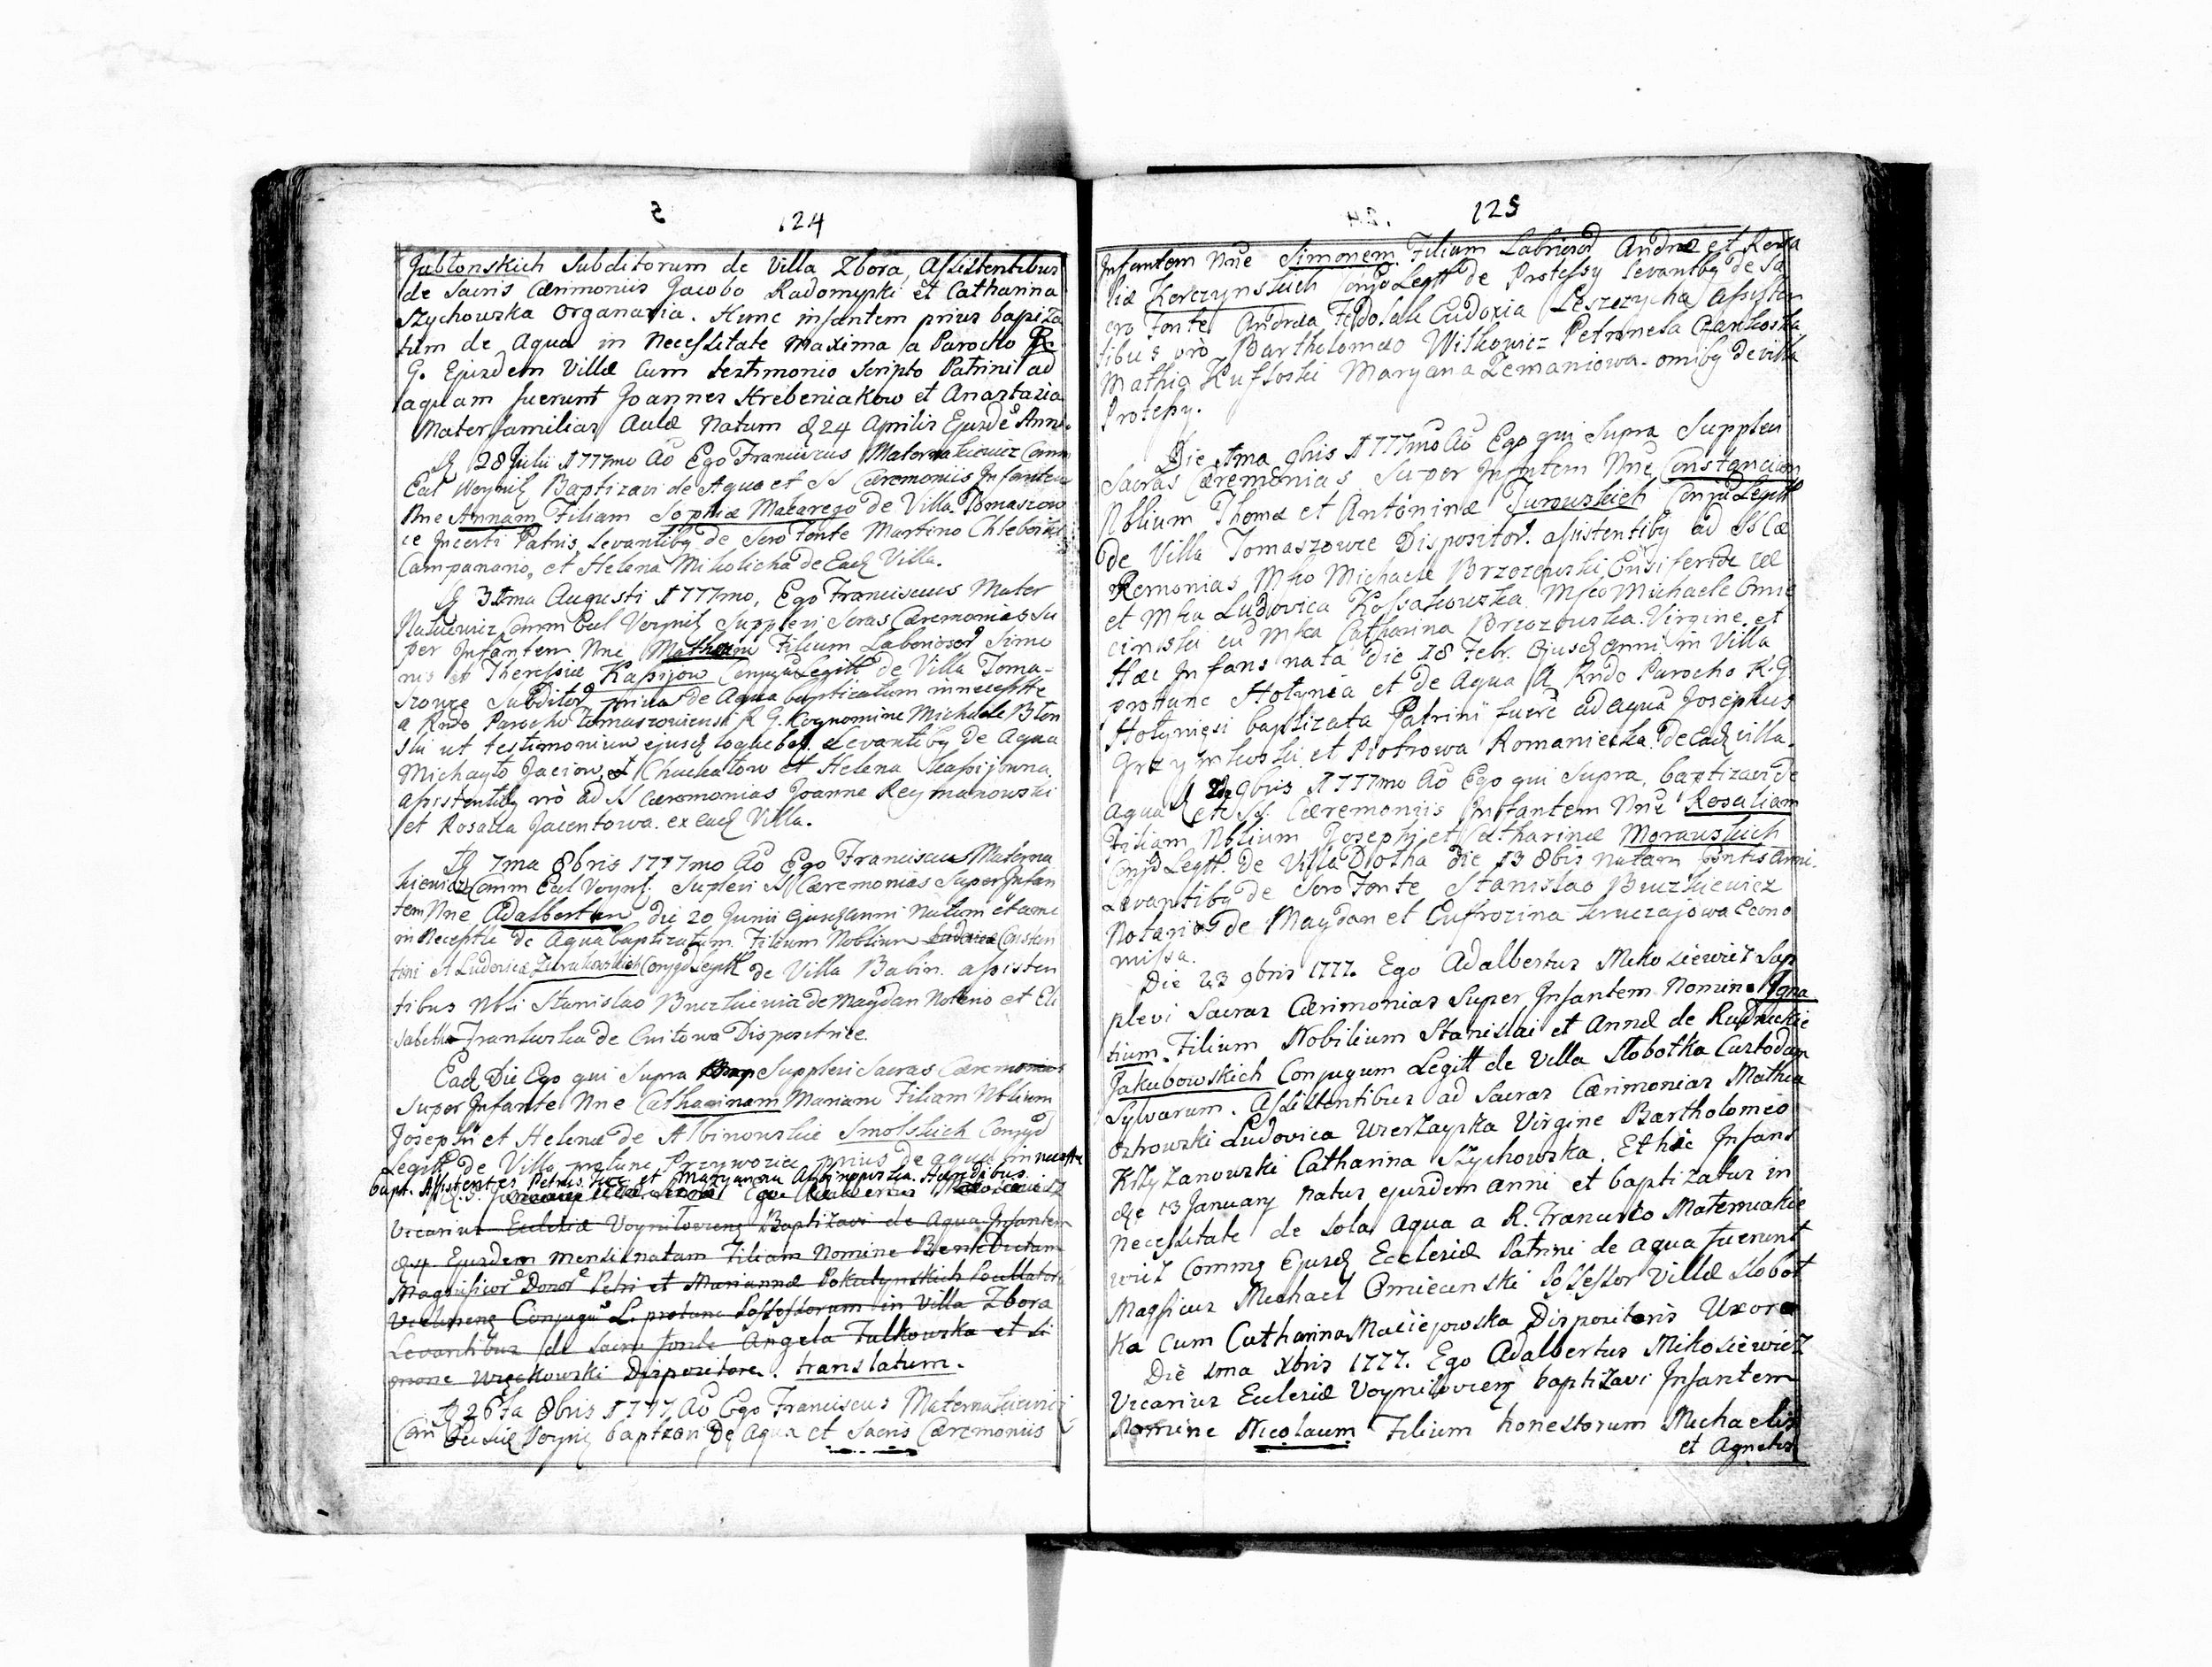 124
Jabłonskich Subditorum de Villa Zbora, Assistentibus
de Sacris Cærimoniis Jacobo Radomypki et Catharina
Szychowska Organaria. Hunc infantem prius baptiza
tum de Aqua in Necessitate Maxima a Parocho R.
G. Ejusdem Villæ Cum testimonio Scripto Patrini ad
aquam fuerunt Joannes Hrebeniakow et Anastazia
Mater familias Aulæ Natum d 24 Aprilis Ejusdē Anni.
D 28 Julii 1777mo Aō Ego Franciscus Maternakiewicz Comm
Eccl Woynil Baptizavi de Aqua et SS Cæremoniis Infantem
Nne Annam Filiam Sophiæ Makarego de Villa Tomaszow
ce Incerti Patris, Levantibg de Scro Fonte Martino Chleborski
Campanano, et Helena Mikolicha de Eadz Villa.
D 31ma Augusti 1777mo, Ego Franciscus Mater
Nakiewicz Comm Eccl Voynil Supplevi Scras Cæremonias Su
per Infantem Nne Filium Laboriosor Simo
nis et Theressiæ Kapijow Conjugū Legitt de Villa Toma-
szowce Subditor, prius de Aqua baptizatum in necessitte
a Rndo Parocho Tomaszowiensi R G. Cognomine Michaele Blon
ski ut testimonium ejusd Levantibg de Aqua
Michayło Jaciow, et Chuckatow et Helena Kapijowna.
Assistentibg vrò ad SS Cæremonias Joanne Reymanowski
et Rosalia Jacentowa. ex eadz Villa.
D 7ma 8bris 1777mo Aō Ego Franciscus Materna
kiewicz Comm Eccl Voynil. Suplevi SS Cæremonias Super Infan
tem Nne Adalbertum, die 20 Junii ejusdz anni Natum et a me
in Necesstte de Aqua baptizatum. Filium Nobilium Constan
tini et Ludovicæ Zurakowskich Conjgū Legitt de Villa Babin. assisten
tibus Nbli Stanislao Buczkiewicz de Maydan Notario et Eli
sabetha Frankowska de Cwitowa Dispositrice.
Eadz Die Ego qui Supra Supplevi Sacras Cæremonias
Super Infante Nne Catharinam Mariannā Filiam Nblium
Josephi et Helenæ de Albinowskie Smolskich Conjgū
Legitt de Villa protunc Przywozie prius de aqua in necesstte
bapt. Assistentes Petrus Juc et Maryanna Albinowska. Hæredibus.
Vicarius Ecclesiæ Voyniłovienz Baptizavi de Aqua Infantem
d 4 Ejusdem mensis natam Filiam Nomine Benedictam
Magnificorū Donorū Petri et Mariannæ Pokutynskich
Conjugū L. protunc Possessorum in Villa Zbora
Levantibus de Sacro fonte Angela Fulkowska et Si
mone Więckowski Dispositore. translatum.
D 26ta 8bris 1777 Aō Ego Franciscus Maternakiewicz
Com Eclsiæ Voynil baptzavi De Aqua et Sacris Cæremoniis
125
Infantem Nne Simonem Filium Labriosor Andræ et Rosa
liæ Korczynskich Conjg Legitt de Protessy Levantbg de Sa
cro Fonte Andrea Fedosak Eudoxia Leszczycha Assisten
tibus vrò Bartholomæo Witkowicz Petronela Czankoska
Mathia Kussoski Maryana Zemaniowa. omibg de villa
Protessy.
Die 1ma 9bris 1777mo Aō Ego qui Supra Supplevi
Sacras Cæremonias Super Infantem Nne Constanciam
Nblium Thomæ et Antoninæ Turowskich Conjū Legitt
de Villa Tomaszowce Dispositor. assistentibg ad SS Cæ
Remonias Mfco Michaele Brzozowski Ensiferide
et Mfca Ludovica Kossakowska. Mfco Michaele Omie
cinski cū Mfca Catharina Brzozowska Virgine, et
Hæc Infans nata die 18 Febr. Ejusdz Anni in Villa
protunc Hołynia et de Aqua A Rndo Parocho R. G.
Hołyniesi baptizata Patrini fuere ad aquā Josephus
Grzymkoski et Piotrowa Romaniecka de Eadz villa.
D 9bris 1777mo Aō Ego qui Supra, baptizavi de
Aqua et SS. Cæremoniis Infantem Nne Rosaliam
Filiam Nblium Josephi et Catharinæ Morawskich
Conjg Legitt. de Villa Dołha die 13 8bis natam pntis anni.
Levantibg de Scro Fonte Stanislao Buczkiewicz
Notario de Maydan et Eufrozina kruczajowa Econo
missa.
Die 23 9bris 1777. Ego Adalbertus Mikosiewicz Sup
plevi Sacras Cærimonias Super Infantem Nomine Igna
tium. Filium Nobilium Stanislai et Annæ de Rudnickie
Jakubowskich Conjugum Legitt de Villa Słobotka Custodum
Sylvarum. Assistentibus ad Sacras Cærimonias Mathia
Ostrowski Ludovica Wierzayska Virgine Bartholomeo
Krzyzanowski Catharina Szychowska. Et hic Infans
die 13 January natus ejusdem anni et baptizatus in
Necessitate de sola Aqua a R. Francisco Maternakie
wicz Commg Ejusdz Ecclesiæ Patrini de aqua fuerunt
Magficus Michael Omiecinski Possessor Villæ Słobot
ka cum Catharina Maciejowska Dispositoris Uxore
Die 1ma Xbris 1777. Ego Adalbertus Mikosiewicz
Vicarius Ecclesiæ Voyniłovienz baptizavi Infantem
Nomine Nicolaum Filium honestorum Michaelis
et Agnetis